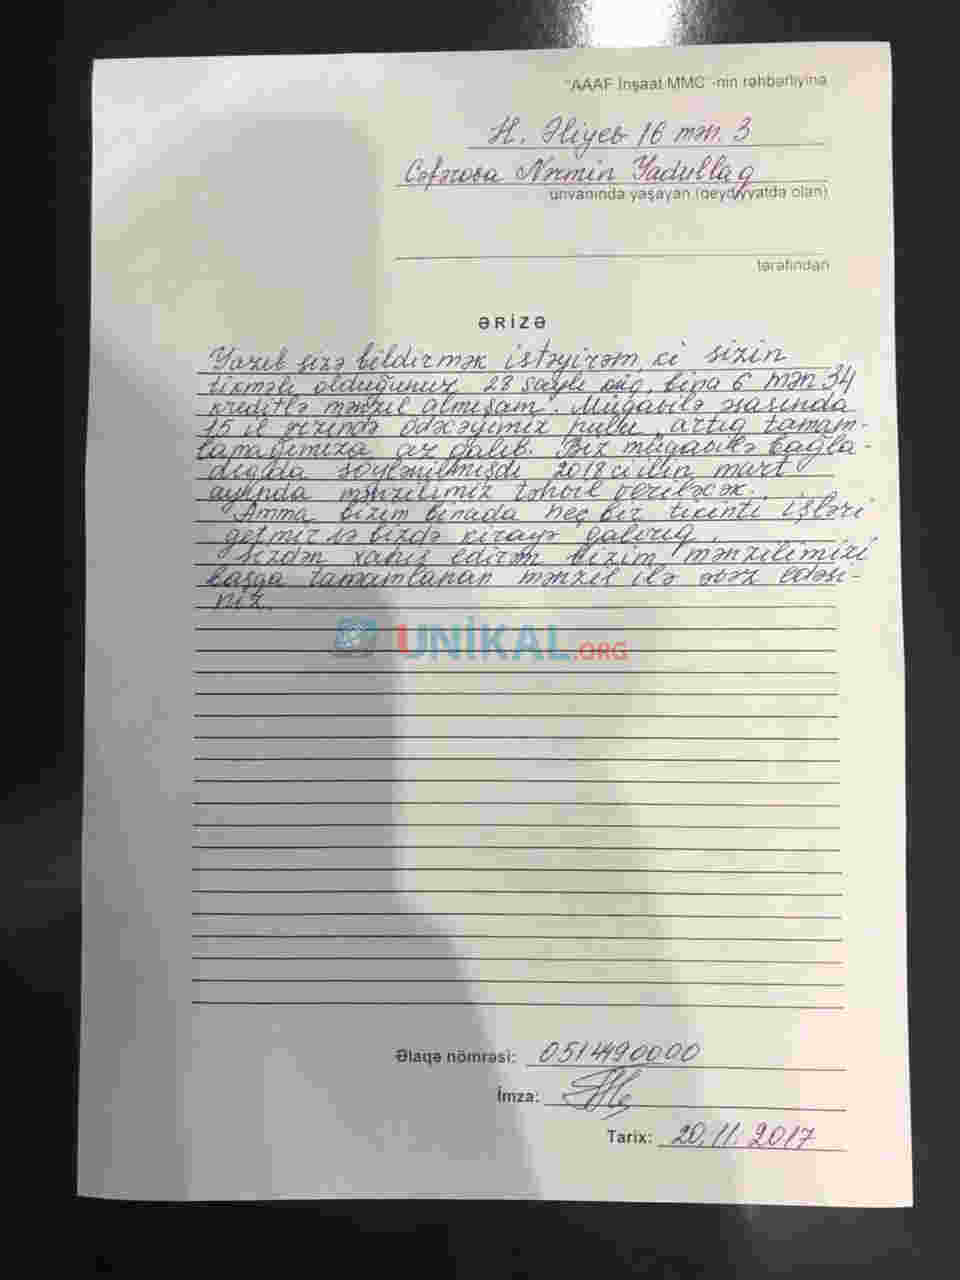 "AAAF İnşaat MMC"-nin rəhbərliyinə
H. Əliyev 16 mən. 3
Cəfərova Nərmin Yadullaq
ünvanında yaşayan (qeydiyyatda olan)
tərəfindən
ƏRİZƏ
Yazıb sizə bildirmək istəyirəm ki sizin
tikməli olduğunuz 28 saylı bina 6 mən 34
kreditlə mənzil almışam. Müqavilə əsasında
15 il ərzində ödəcəyimiz pulu artıq tamam-
lamağımıza az qalıb. Biz müqavilə bağla-
dıqda söylənilmişdi 2018 ci ilin mart
ayında mənzilimiz təhvil veriləcək.
Amma bizim binada heç bir tikinti işləri
getmir və bizdə kirayə qalırıq.
Sizdən xahiş edirəm bizim mənzilimizi
başqa tamamlanan mənzil ilə əvəz edəsi-
niz.
UNİKAL.ORG
Əlaqə nömrəsi: 0514490000
İmza:
Tarix: 20.11.2017